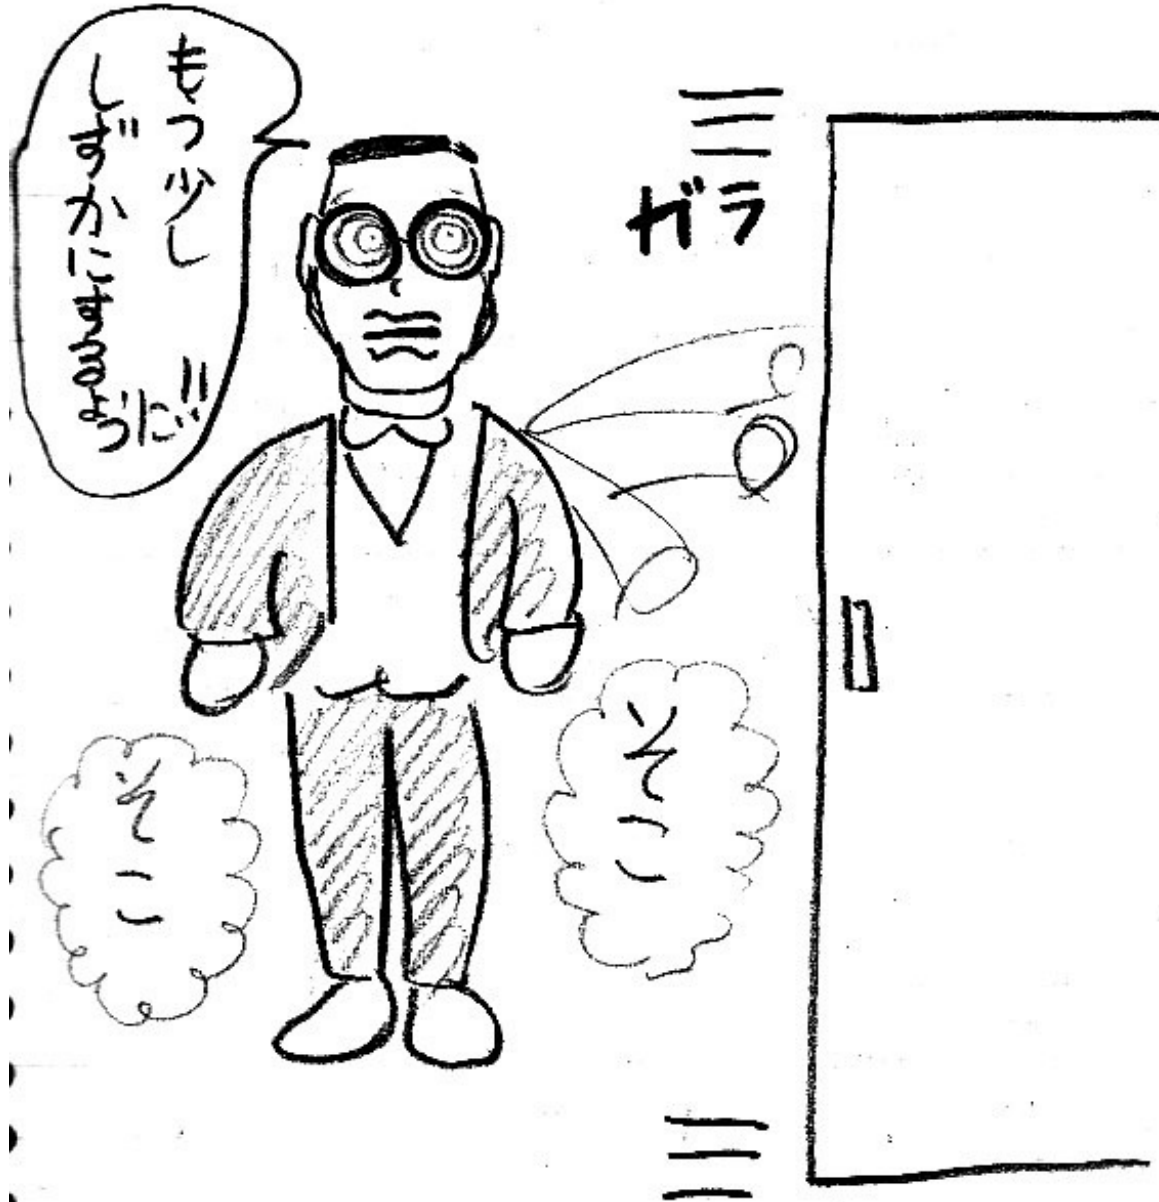 もう少し
しずかにするように!!
ガラ
そこ
そこ